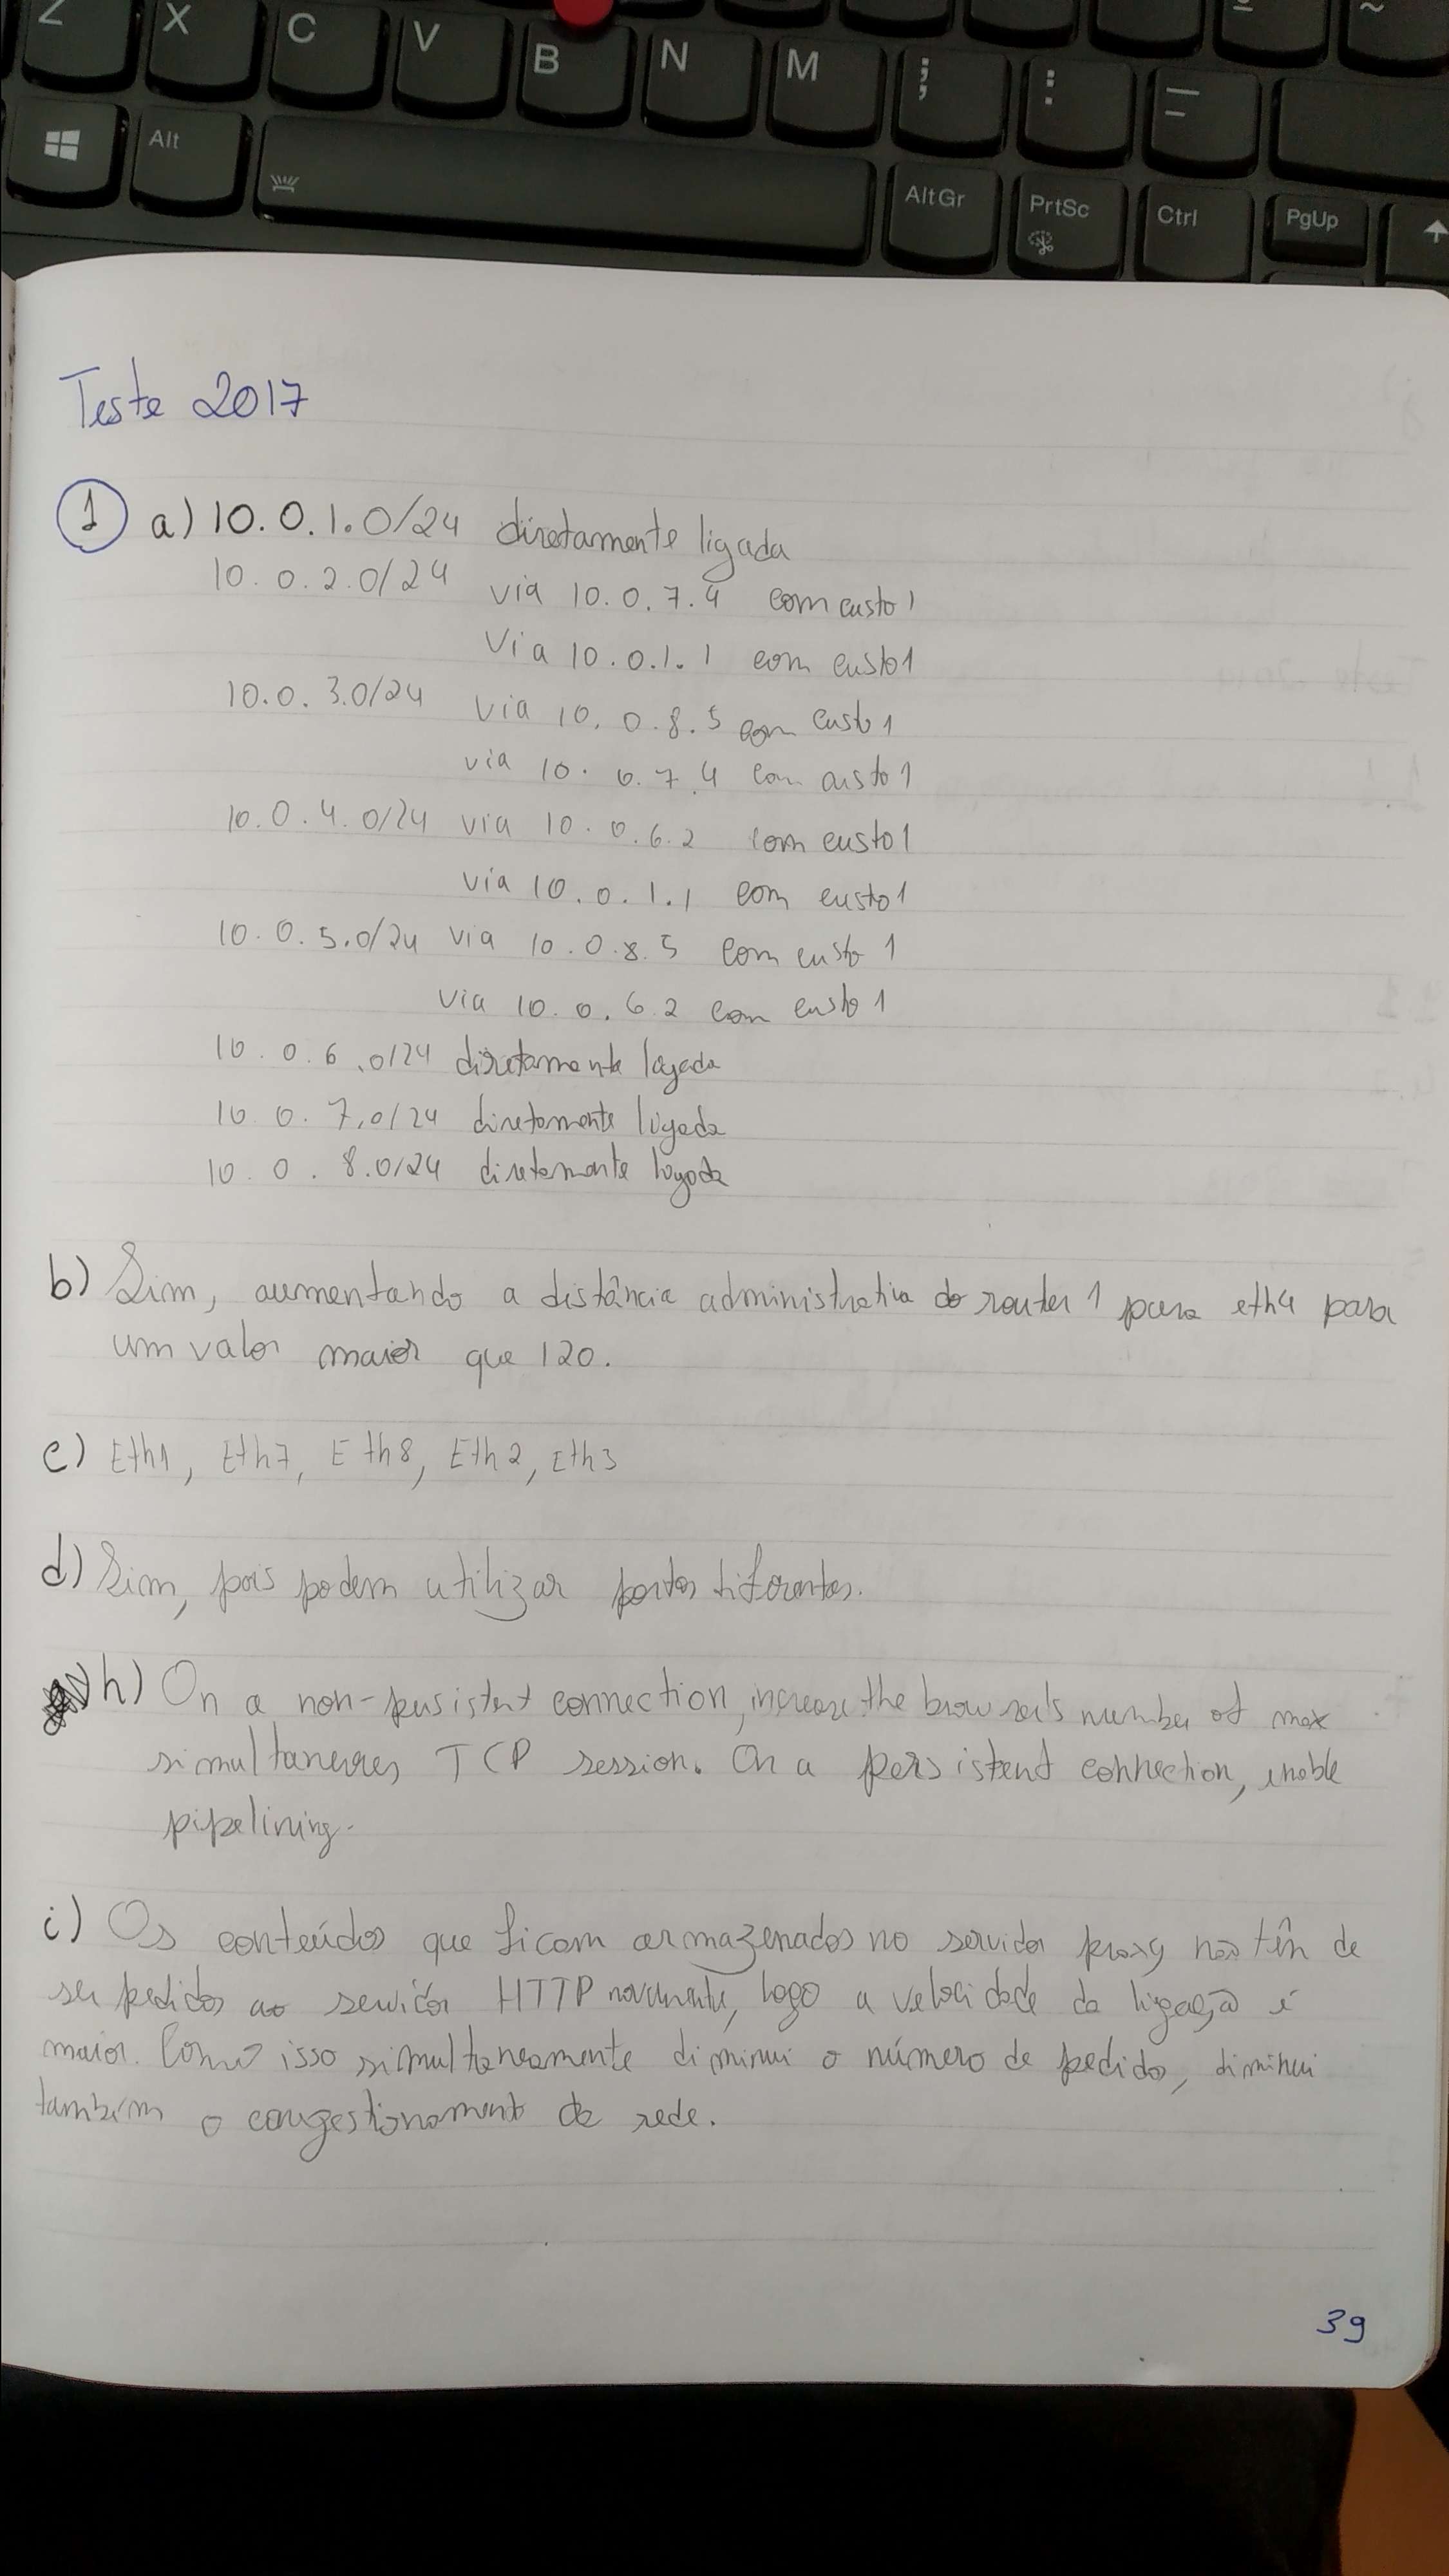 Z X C V B N M ; :
Alt AltGr PrtSc Ctrl PgUp
Teste 2017
1 a) 10.0.1.0/24 diretamente ligada
10.0.2.0/24 via 10.0.7.4 com custo 1
Via 10.0.1.1 com custo 1
10.0.3.0/24 via 10.0.8.5 com custo 1
via 10.0.7.4 com custo 1
10.0.4.0/24 via 10.0.6.2 com custo 1
via 10.0.1.1 com custo 1
10.0.5.0/24 via 10.0.8.5 com custo 1
via 10.0.6.2 com custo 1
10.0.6.0/24 diretamente ligada
10.0.7.0/24 diretamente ligada
10.0.8.0/24 diretamente ligada
b) Sim, aumentando a distância administrativa do router 1 para eth4 para
um valor maior que 120.
c) Eth1, Eth7, Eth8, Eth2, Eth3
d) Sim, pois podem utilizar portas diferentes.
h) On a non-persistent connection, increase the browser's number of max
simultaneous TCP session. On a persistent connection, enable
pipelining.
i) Os conteúdos que ficam armazenados no servidor proxy não têm de
ser pedidos ao servidor HTTP novamente, logo a velocidade da ligação é
maior. Como isso simultaneamente diminui o número de pedidos, diminui
também o congestionamento da rede.
39